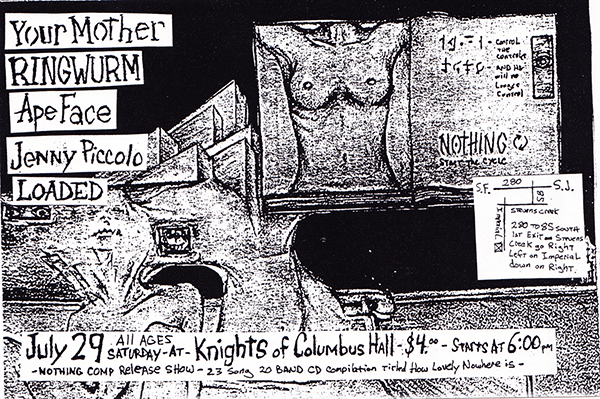 Your Mother
RINGWURM
Ape Face
Jenny Piccolo
LOADED
CONTROL
THE
CONTROLS
AND HE
will no
Longer
Control
NOTHING
START THE CYCLE
S.F. 280 S.J.
85
Imperial
STEVENS CREEK
280 TO 85 SOUTH
1st Exit on Stevens
Creek go Right
Left on Imperial
down on Right.
July 29 All AGES
SATURDAY-AT- Knights of Columbus Hall - $4.00 - STARTS AT 6:00 pm
- NOTHING COMP RELEASE SHOW - 23 Song 20 BAND CD compilation Titled How Lovely Nowhere is -